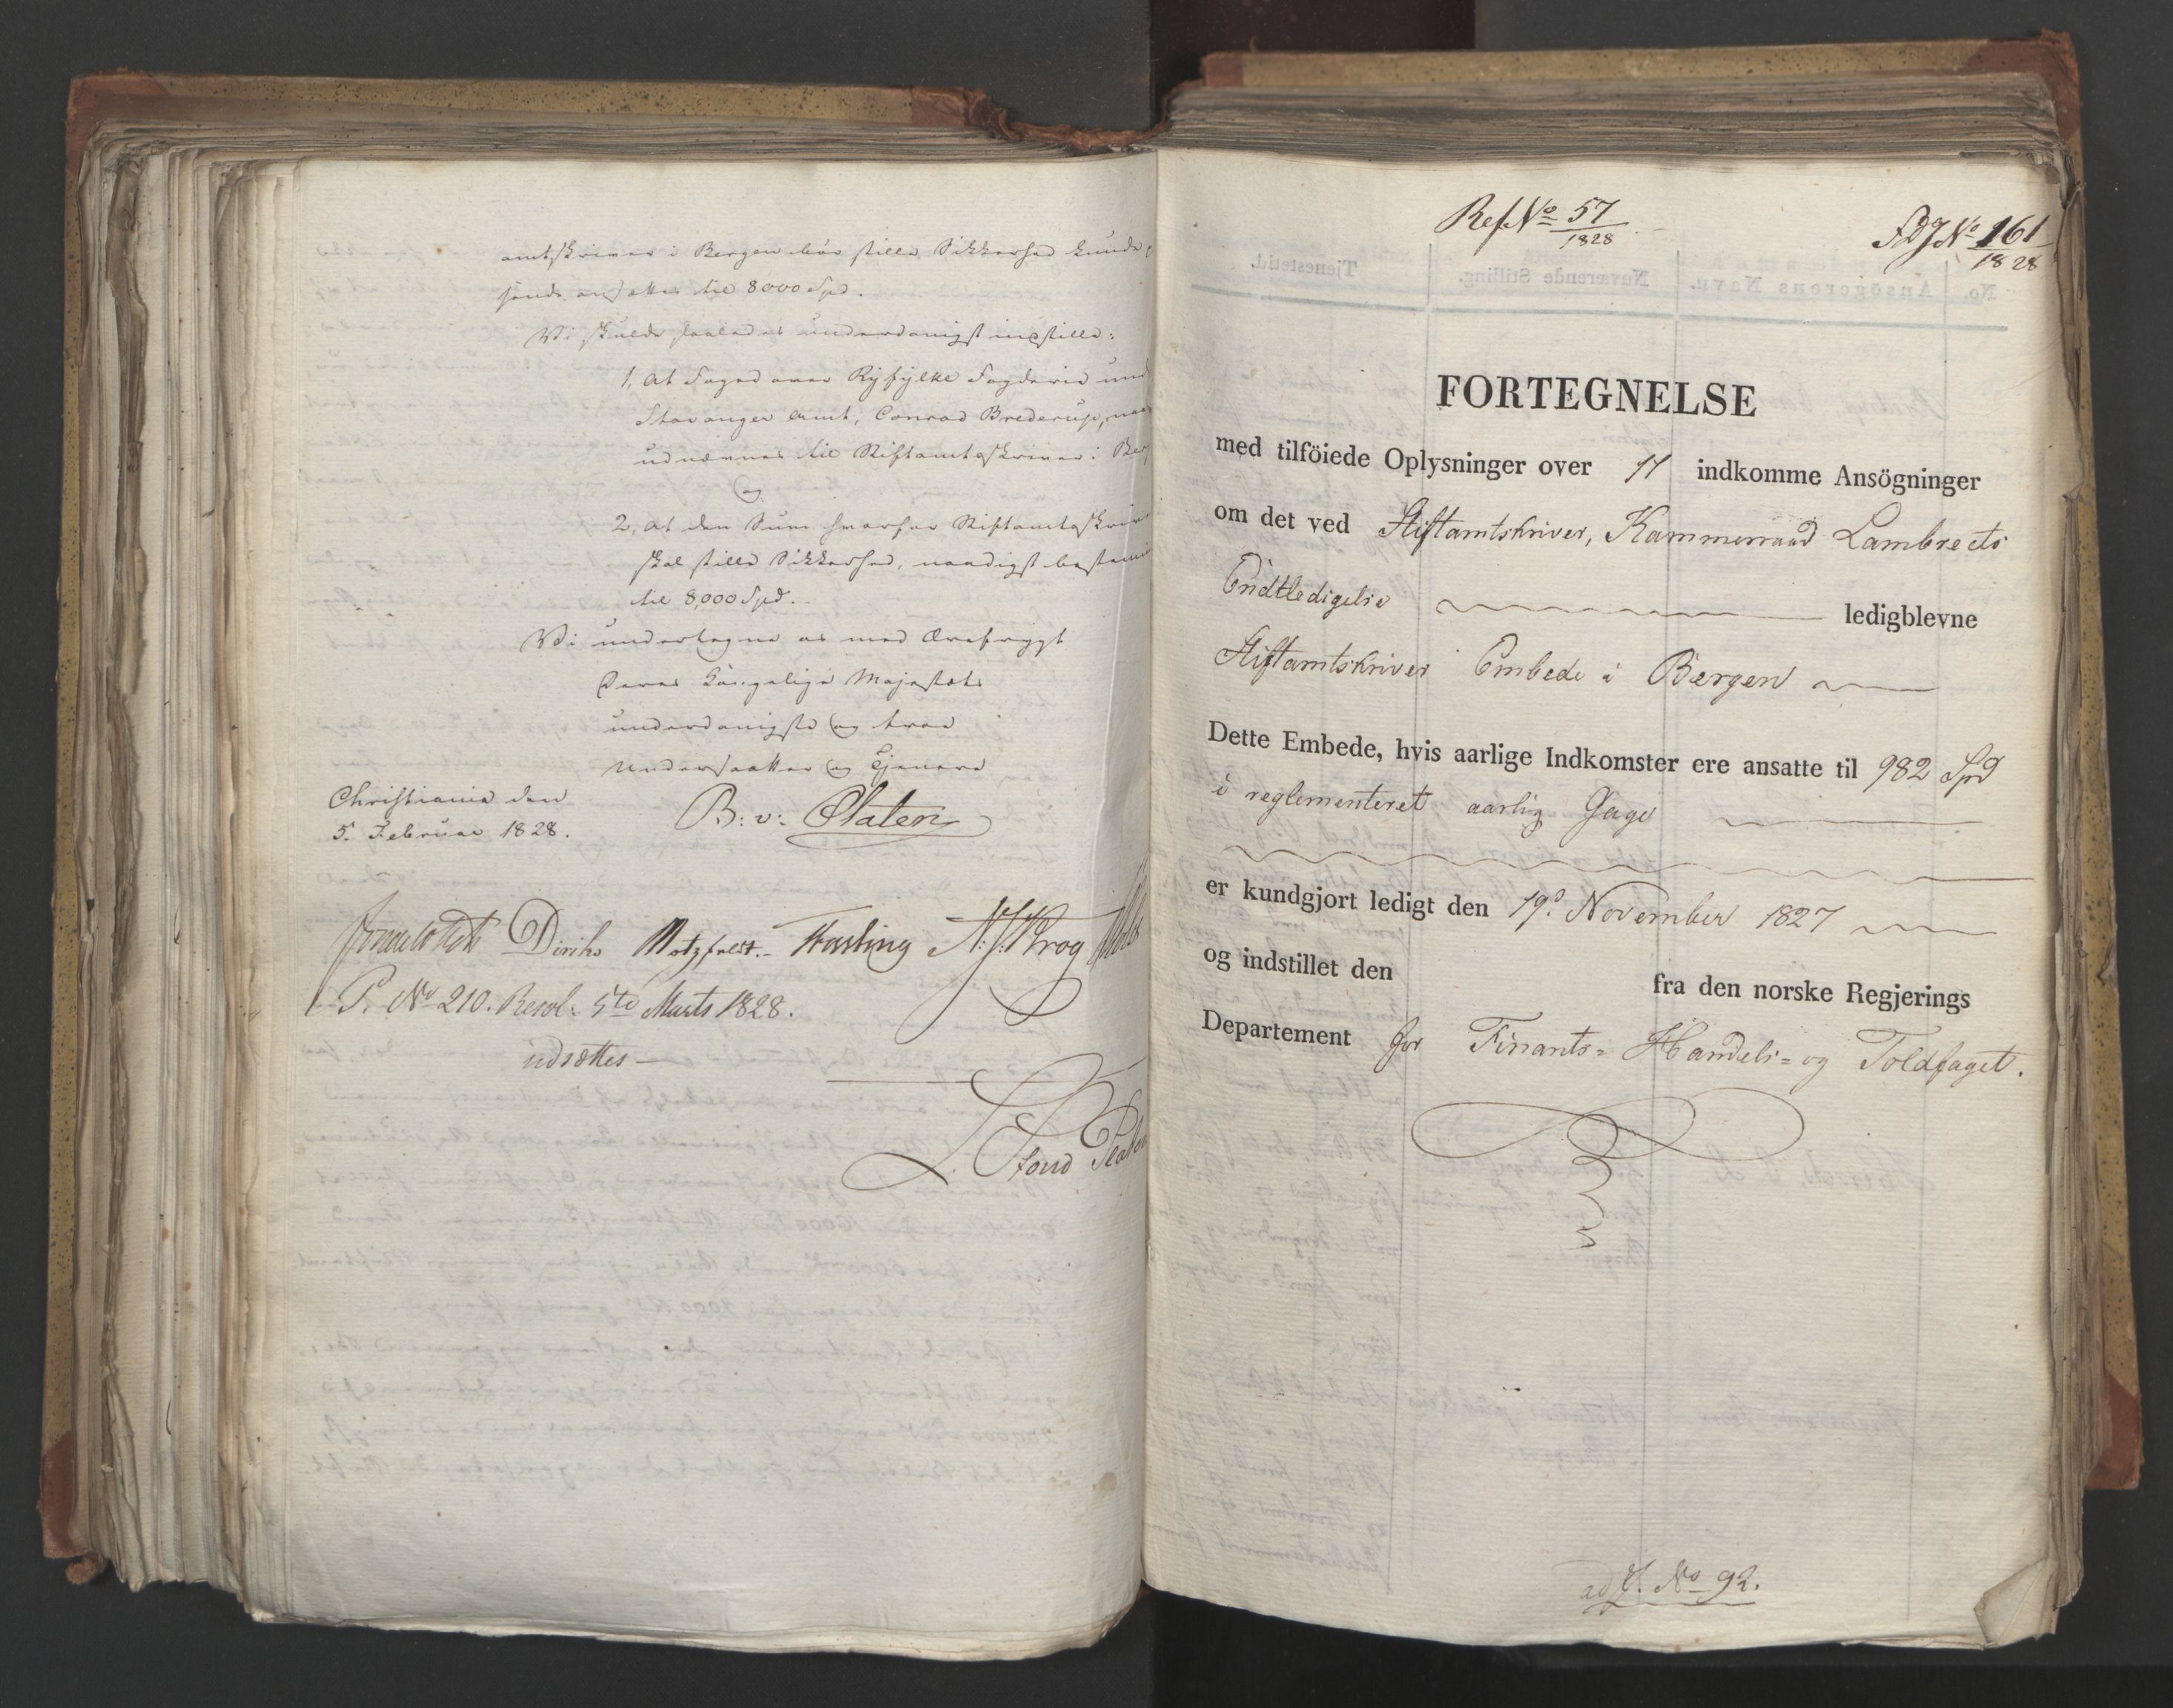 amtskriver i Bergen bör stille Sikkerhed kunde
ansættes til 8000 Spd.
Vi skulde saaledes underdanigst indstille:
1, at Foged over Ryfylke Fogderie und
Stavanger Amt, Conrad Brederup, naa
udnævnes til Stiftamtskriver i Ber
og
2, at den Sum hvorfor Stiftamtskriv
skal stille Sikkerhed, naadigst bestem
til 8,000 Spd.
Vi undertegne os med Ærefrygt
Deres Kongelige Majestæts
underdanigste og troe
Undersaatter og Tjenere
Christiania den
5. Februar 1828.
B: v: Platen
Diriks Motzfeldt. Fasting N: J: Krog
P. No 210. Resol. 5te Marts 1828.
udsættes
Ref No 57/1828
No 161
1828
FORTEGNELSE
med tilföiede Oplysninger over 11 indkomme Ansögninger
om det ved Stiftamtskriver, Kammerraad Lambrects
Endtledigelse ledigblevne
Stiftamtskriver Embede i Bergen
Dette Embede, hvis aarlige Indkomster ere ansatte til 982 Spd
i reglementeret aarlig Gage
er kundgjort ledigt den 19d November 1827
og indstillet den fra den norske Regjerings
Departement for Finants- Handels- og Toldfaget.
No 92.